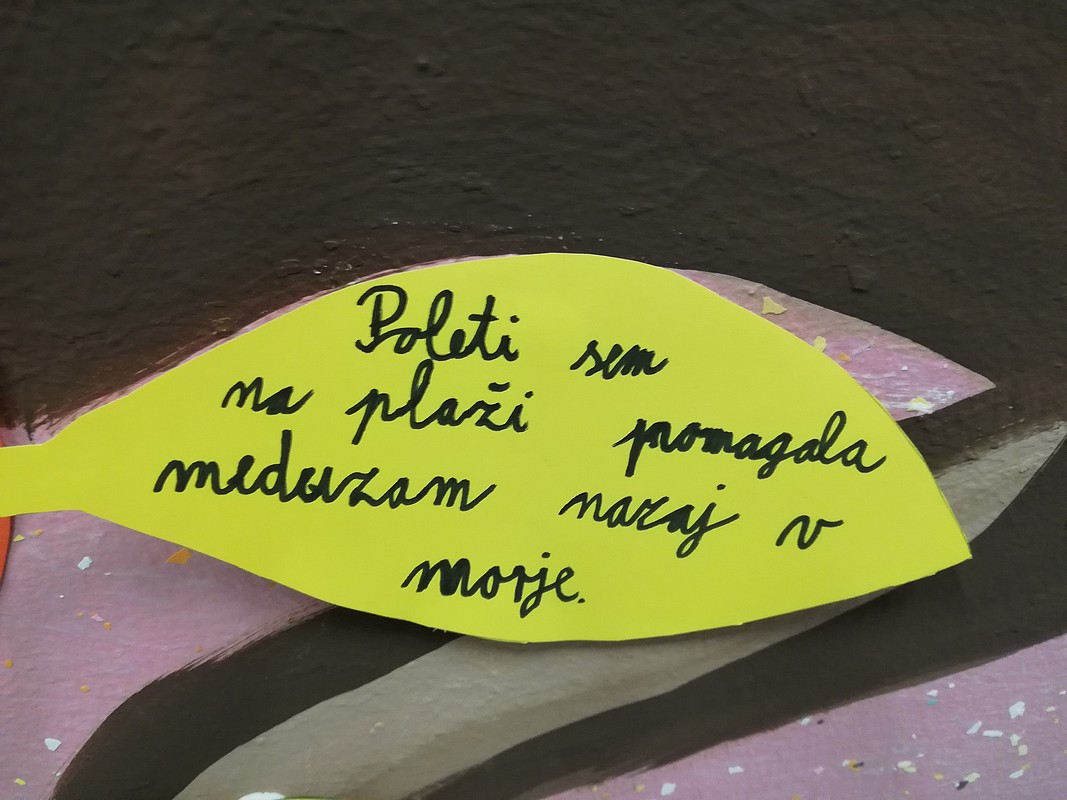 Poleti sem
na plaži pomagala
meduzam nazaj v
morje.